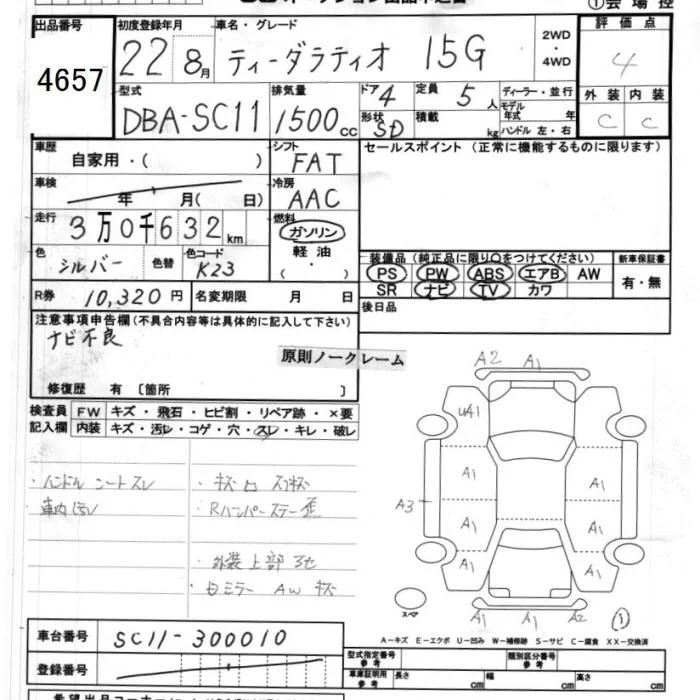 ①会場控
出品番号 4657
初度登録年月 22 8月
車名・グレード ティーダラティオ 15G
2WD ・ 4WD
評価点 4
外装 C 内装 C
型式 DBA-SC11
排気量 1500cc
ドア 4 形状 SD
定員 5人
積載 kg
ディーラー・並行
モデル年式 年
ハンドル 左・右
車歴 自家用・( )
シフト FAT
セールスポイント (正常に機能するものに限ります)
車検 年 月( 日)
冷房 AAC
走行 3万0千632km
燃料 ガソリン 軽油 ( ・ )
色 シルバー 色替
色コード K23
装備品 (純正品に限り○をつけてください)
新車保証書 有・無
PS PW ABS エアB AW
SR ナビ TV カワ
R券 10,320円
名変期限 月 日
後日品
注意事項申告欄(不具合内容等は具体的に記入して下さい)
ナビ不良
原則ノークレーム
修復歴 有 〔箇所 〕
検査員記入欄
FW キズ・飛石・ヒビ割・リペア跡・×要
内装 キズ・汚レ・コゲ・穴・スレ・キレ・破レ
・ハンドル シートスレ
・車内汚レ
・Rバンパーステー歪
・外装上部
ミラー AW キズ
A2 A1
UA1
A1 A1
A3
A1 A1
A1 A1
スペア
A1 A1 A2
①
A-キズ E-エクボ U-凹み W-補修跡 S-サビ C-腐食 XX-交換済
車台番号 SC11-300010
登録番号
型式指定番号 参考
類別区分番号 参考
車庫証明用 参考 長さ cm 幅 cm 高さ cm